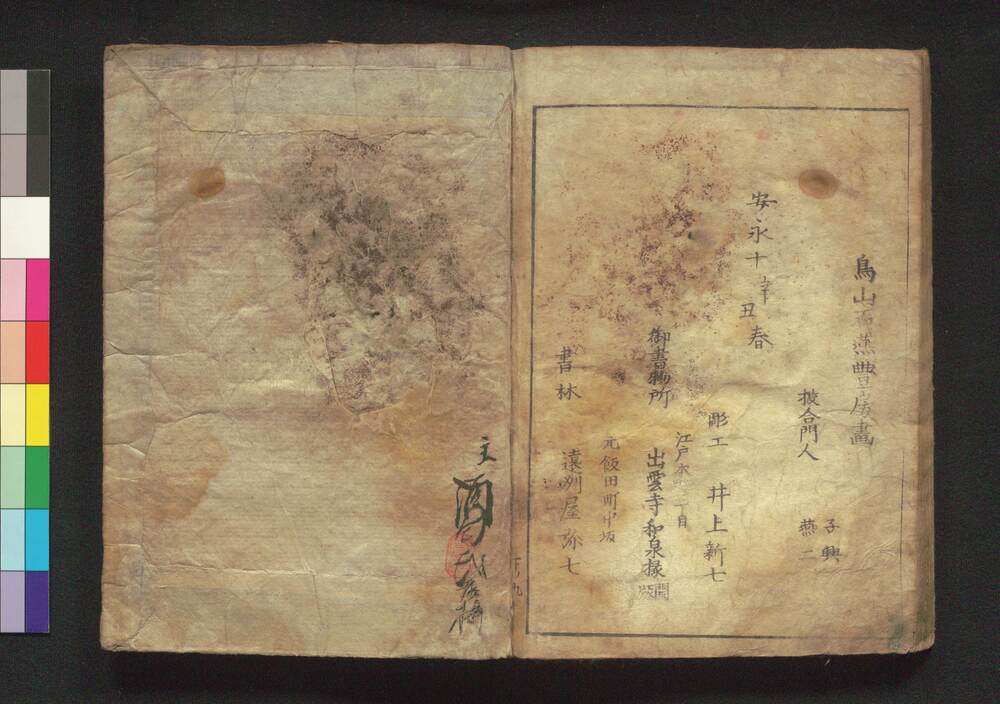 鳥山石燕豊房畫
挍合門人
子興
燕二
安永十辛丑春
彫工 井上新七
江戸本 二丁目
御書物所 出雲寺和泉掾
元飯田町中坂
書林 遠州屋弥七
下九
主